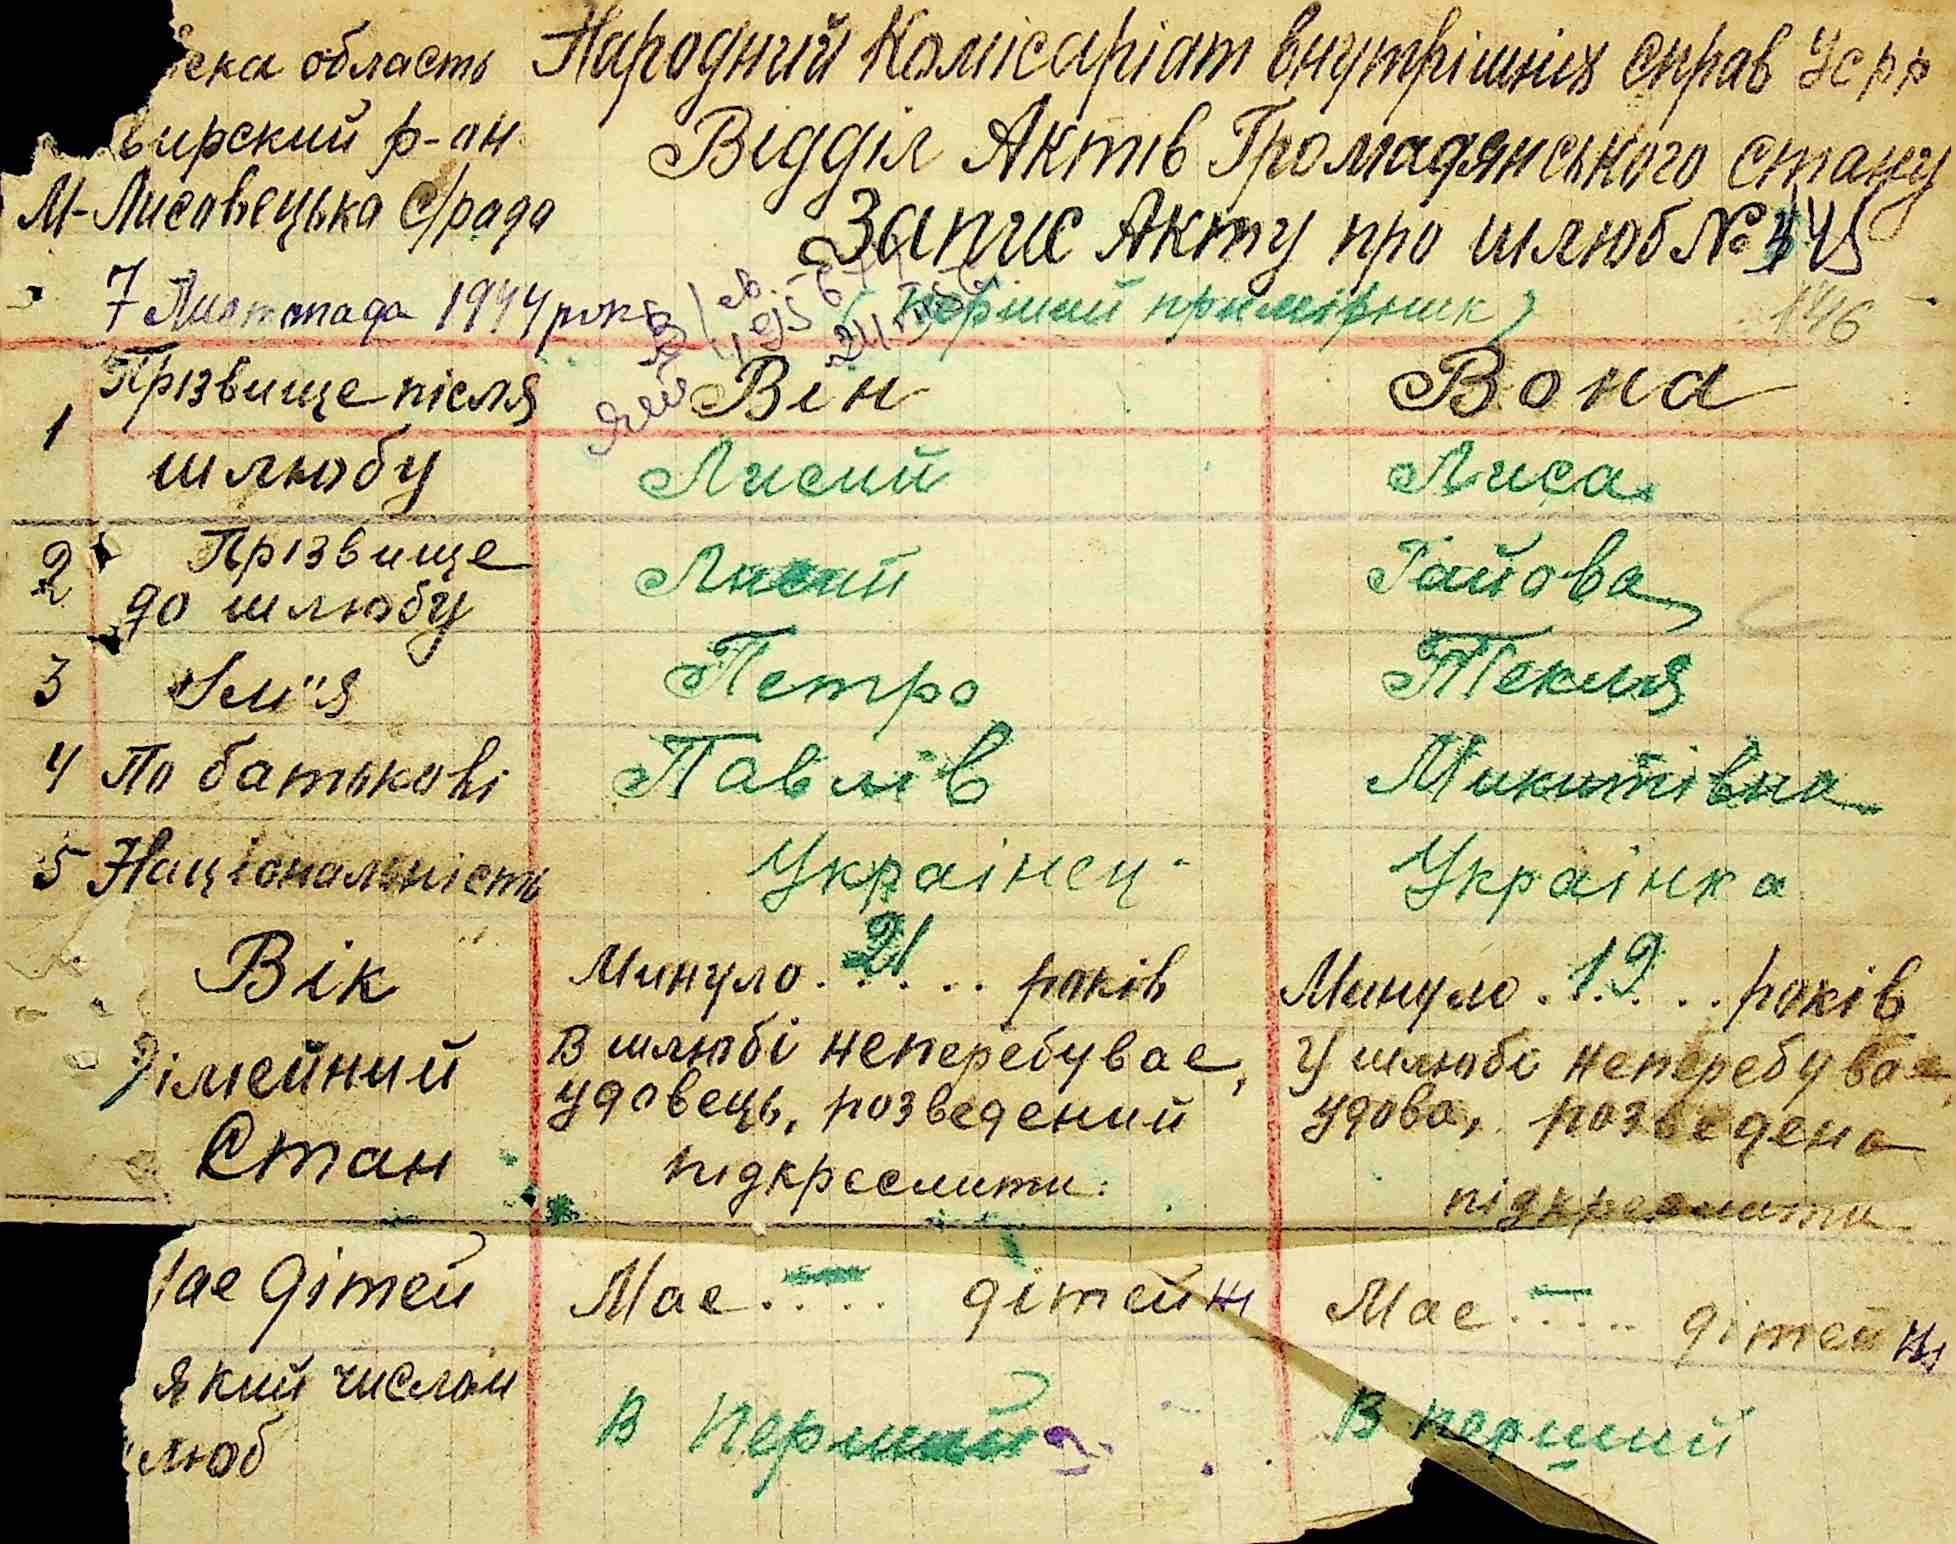 ска область Народний Комісаріат внутрішніх справ Усрр
ирский р-он Відділ Актів Громадянського стану
М-Лисовецька с/рада Запис Акту про шлюб №
7 Листопада 1944 року (Перший примірник) 146
1 Прізвище після Він Вона
шлюбу Лисий Лиса
2 Прізвище
до шлюбу Лисий Гайова
3 Ім"я Петро Текля
4 По батькові Павлів Микитівна
5 Національність Украінец Украінка
Вік Минуло . 21 . . . років Минуло . 19 . . . років
імейний В шлюбі неперебувае, У шлюбі неперебувае,
Стан удовець, розведений удова, розведена
підкреслити. підкреслити
ае дітей Мае . . . . . дітей Мае . . . . . дітей
який числом В Перший В перший
люб